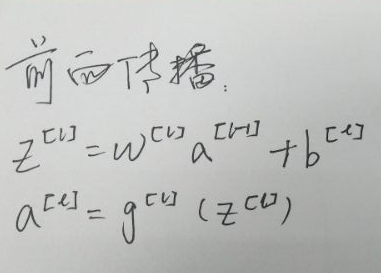 前面传播:
z^[l] = w^[l] a^[l-1] + b^[l]
a^[l] = g^[l] (z^[l])